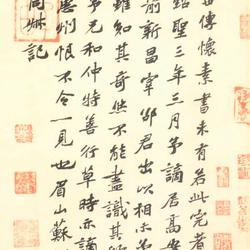 世傳懷素書未有若此完者
紹聖三年三月予謫居高安
前新昌宰邵君出以相示予
雖知其奇然不能盡識其妙
予兄和仲特善行草時亦謫
惠州恨不令一見也眉山蘇
同叔記